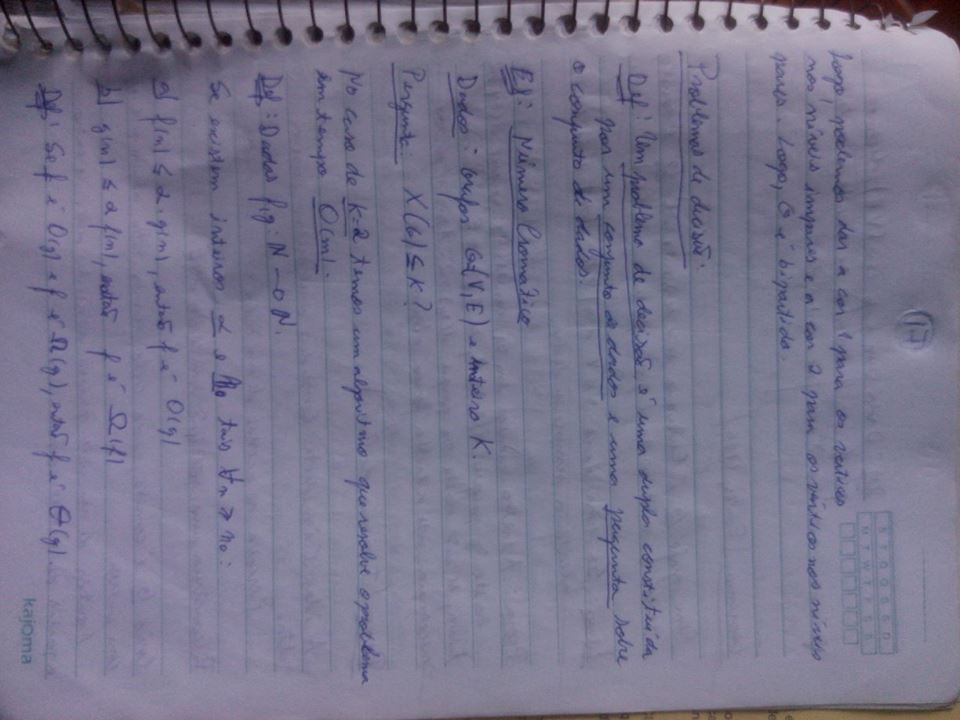 17
S T Q Q S S D
M T W T F S S
Logo, podemos dar a cor 1 para os vértices
nos níveis impares e a cor 2 para os vértices nos níveis
pares. Logo, G é bipartido.
Problemas de decisão:
Def: Um problema de decisão é uma dupla constituída
por um conjunto de dados e uma pergunta sobre
o conjunto de dados.
Ex: Número Cromático
Dados: Grafos G(V,E) e Inteiro K.
Pergunta: X(G) ≤ K?
No caso de K=2 temos um algoritmo que resolve o problema
em tempo O(m).
Def: Dadas f,g: N → N.
Se existem inteiros α e n₀ tais ∀n ≥ n₀:
a) f(n) ≤ α.g(n), então f é O(g)
b) g(n) ≤ α f(n), então f é Ω(f)
Def: Se f é O(g) e f é Ω(g), então f é θ(g).
kajoma